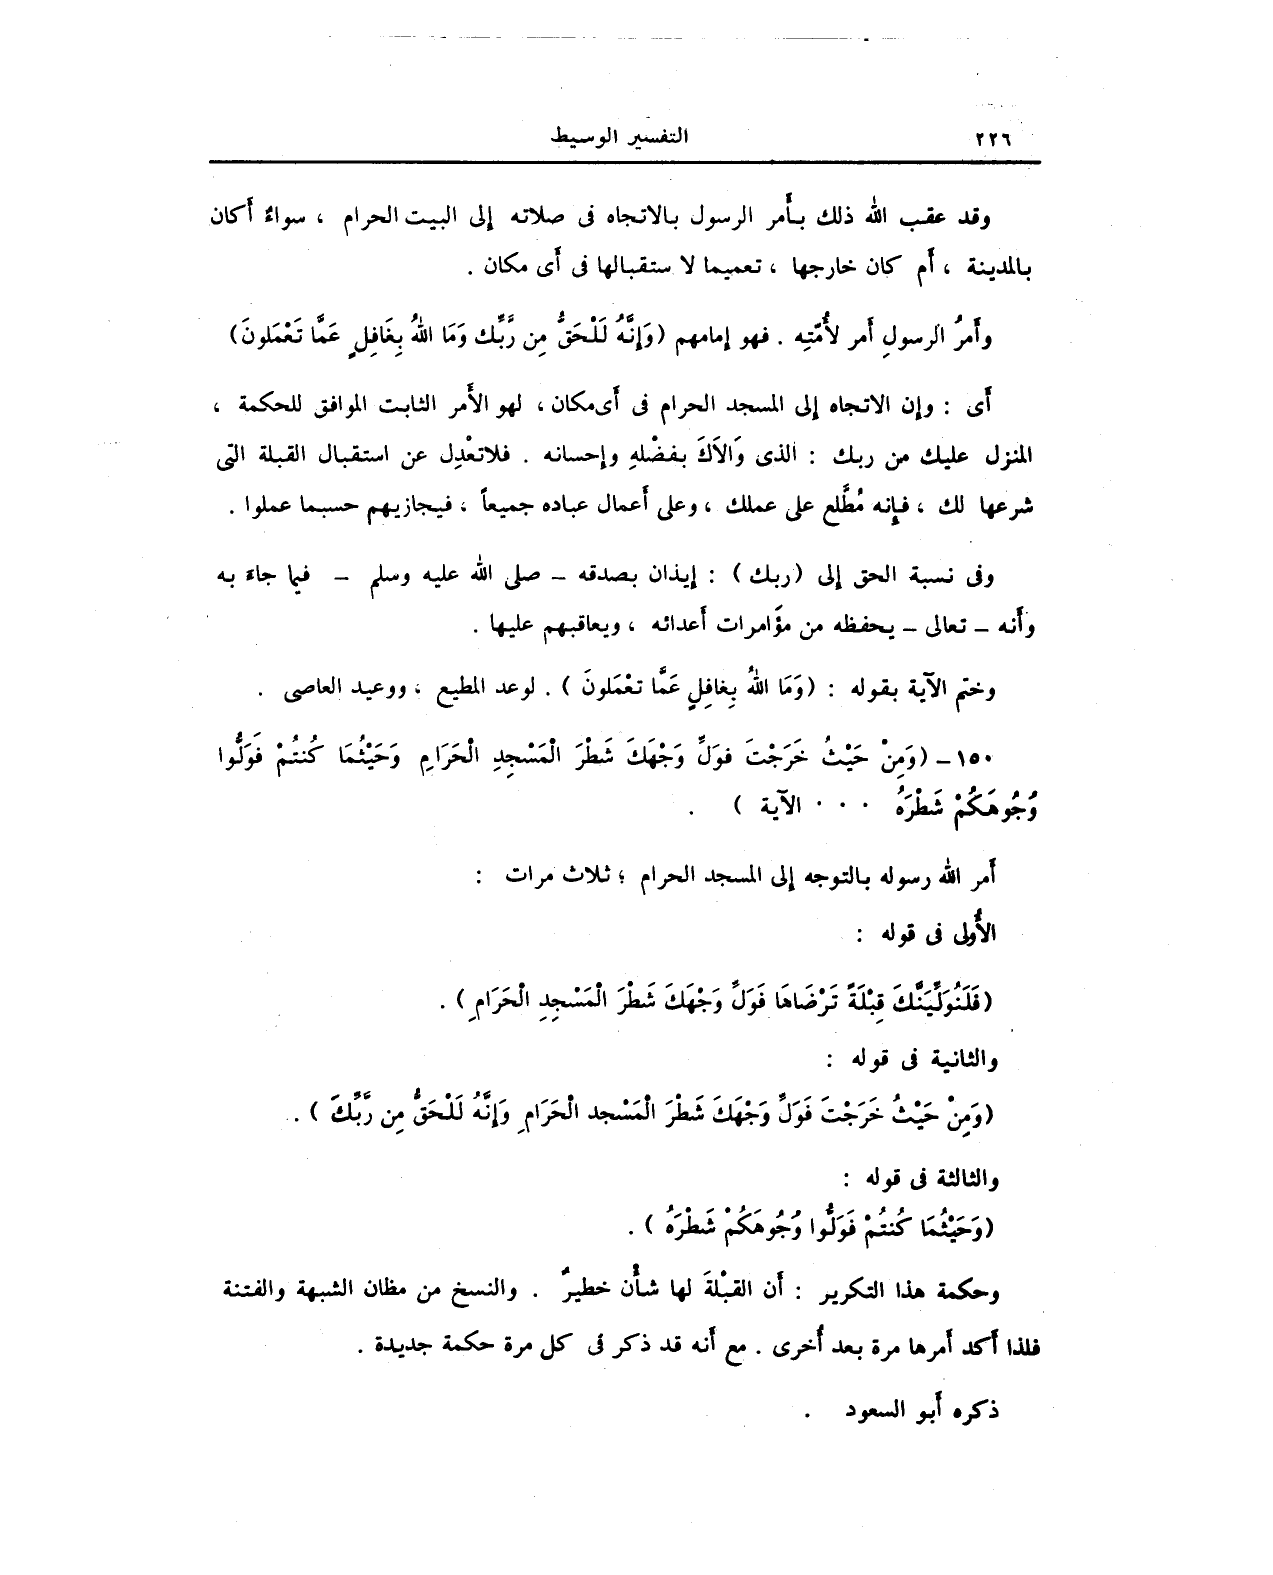 ٢٢٦
التفسير الوسيط
وقد عقب الله ذلك بأَمر الرسول بالاتجاه فى صلاته إلى البيت الحرام ، سواءٌ أَكان
بالمدينة ، أَم كان خارجها ، تعميما لا ستقبالها فى أَى مكان .
وأَمرُ الرسولِ أَمر لأُمَّتِه . فهو إمامهم (وَإِنَّهُ لَلْحَقُّ مِن رَّبِّك وَمَا اللهُ بِغَافِلٍ عَمَّا تَعْمَلونَ)
أَى : وإن الاتجاه إلى المسجد الحرام فى أَى مكان ، لهو الأَمر الثابت الموافق للحكمة ،
المنزل عليك من ربك : الذى وَالاَكَ بفضْلهِ وإحسانه . فلاتعْدِل عن استقبال القبلة التى
شرعها لك ، فإنه مُطَّلع على عملك ، وعلى أَعمال عباده جميعاً ، فيجازيهم حسبما عملوا .
وفى نسبة الحق إلى (ربك) : إيذان بصدقه – صلى الله عليه وسلم – فيما جاءَ به
وأَنه – تعالى – يحفظه من مؤَامرات أَعدائه ، ويعاقبهم عليها .
وختم الآية بقوله : (وَمَا اللهُ بِغافِلٍ عَمَّا تعْمَلونَ ) . لوعد المطيع ، ووعيد العاصى .
١٥٠ – (وَمِنْ حَيْثُ خَرَجْتَ فولِّ وَجْهَكَ شَطْرَ الْمَسْجِدِ الْحَرَامِ وَحَيْثُمَا كُنتُمْ فَوَلُّوا
وُجُوهَكُمْ شَطْرَهُ . . . الآية ) .
أَمر الله رسوله بالتوجه إلى المسجد الحرام ؛ ثلاث مرات :
الأُولى فى قوله :
(فَلَنُوَلِّيَنَّكَ قِبْلَةً تَرْضَاهَا فَوَلِّ وَجْهَكَ شَطْرَ الْمَسْجِدِ الْحَرَامِ ) .
والثانية فى قوله :
(وَمِنْ حَيْثُ خَرَجْتَ فَوَلِّ وَجْهَكَ شَطْرَ الْمَسْجد الْحَرَامِ وَإِنَّهُ لَلْحَقُّ مِن رَّبِّكَ ) .
والثالثة فى قوله :
(وَحَيْثُمَا كُنتُمْ فَوَلُّوا وُجُوهَكُمْ شَطْرَهُ ) .
وحكمة هذا التكرير : أَن القبْلةَ لها شأْن خطيرٌ . والنسخ من مظان الشبهة والفتنة
فلذا أَكد أَمرها مرة بعد أُخرى . مع أَنه قد ذكر فى كل مرة حكمة جديدة .
ذكره أَبو السعود .